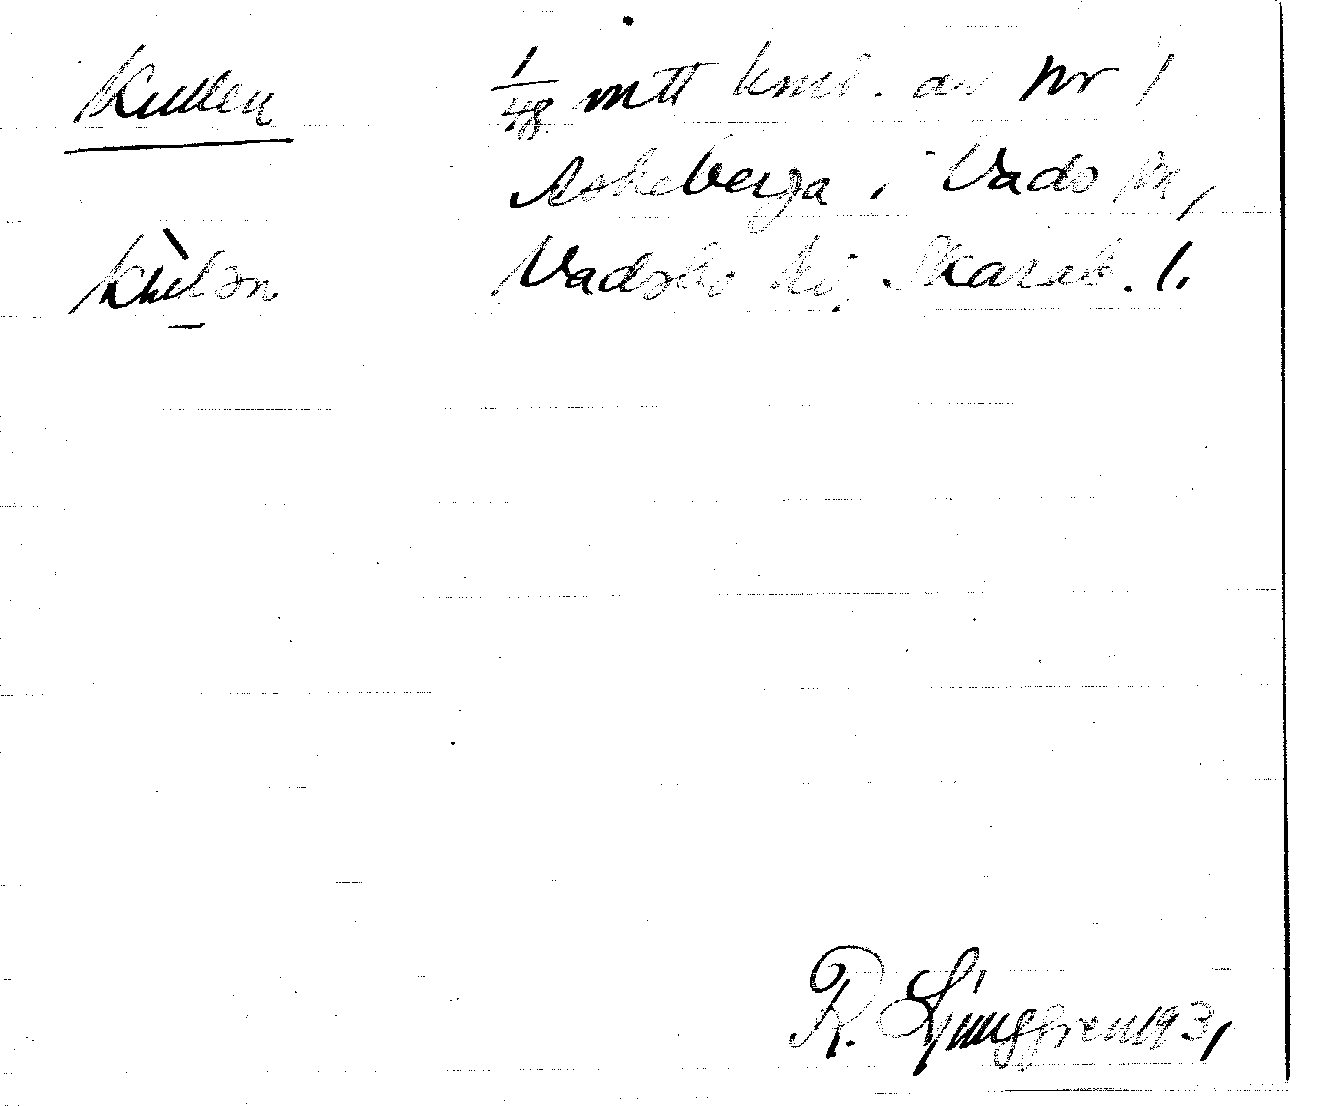 Kullen
1/48 mtl kmd. av Nr 1
Askeberga i Vads sn,
Vadsbo hd, Skarab. l.
R. Ljunggren 1931